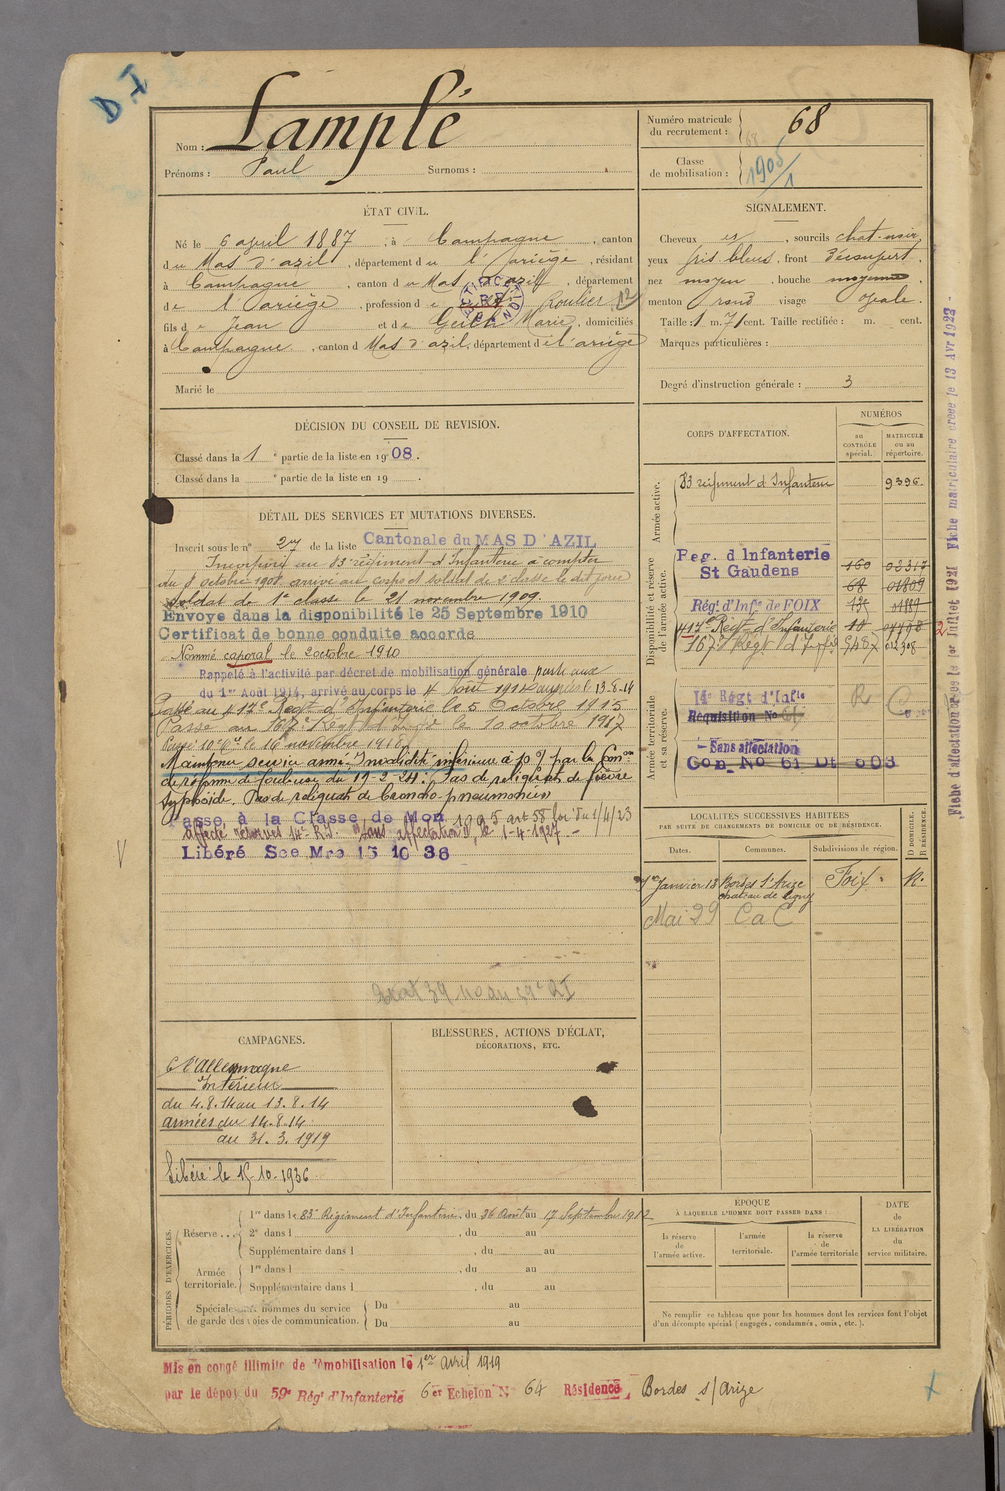 D.I
Nom : Lamplé
Prénoms : Paul Surnoms :
ÉTAT CIVIL.
Né le 6 april 1887, à Campagne, canton
du Mas d'azil, département du l'ariège, résidant
à Campagne, canton du Mas d'azil, département
de l'ariège, profession de Roulier 12
fils de Jean et de Marie, domiciliés
à Campagne, canton d Mas d'azil, département de l'ariège
Marié le
DÉCISION DU CONSEIL DE REVISION.
Classé dans la 1e partie de la liste en 1908.
Classé dans la e partie de la liste en 19
DÉTAIL DES SERVICES ET MUTATIONS DIVERSES.
Inscrit sous le n° 27 de la liste Cantonale du MAS D'AZIL
Incorporé au 83e régiment d'Infanterie à compter
du 8 octobre 1908 arrivé au corps et soldat de 2e classe le dit jour
soldat de 1e classe le 21 novembre 1909
Envoyé dans la disponibilité le 25 Septembre 1910
Certificat de bonne conduite accordé
Nommé caporal le 2 octobre 1910
Rappelé à l'activité par décret de mobilisation générale
du 1er Août 1914, arrivé au corps le 4 août 1914 aux armées le 13-8-14
Passé au 417e Régt d'Infanterie le 5 Octobre 1915
Passé au 167e Régt d'Infie le 10 octobre 1917
Passé le 16 novembre 1918
Maintenu service armé. Invalidité inférieure à 10 % par la Con.on
de réforme de Toulouse du 19-2-24: Pas de reliquats de fièvre
typhoïde. Pas de reliquats de broncho-pneumonien
Passé à la Classe de Mon 1905 art 58 loi du 1/4/23
affecté réserves 14e R.I. "Sans affectation", le 1-4-1927
Libéré Sce Mre 15 10 36
CAMPAGNES.
C l'Allemagne
Intérieur
du 4.8.14 au 13.8.14
armées du 14.8.14
au 31.3.1919
Libéré le 15-10-1936
BLESSURES, ACTIONS D'ÉCLAT,
DÉCORATIONS, ETC.
PÉRIODES D'EXERCICES.
Réserve ... 1re dans le 83e Régiment d'Infanterie, du 26 Août au 17 Septembre 1912
2e dans l , du au
Supplémentaire dans l , du au
Armée territoriale. 1re dans l , du au
Supplémentaire dans l , du au
Spéciales aux hommes du service
de garde des voies de communication. Du au
Du au
Numéro matricule
du recrutement : 68
Classe
de mobilisation : 1905/1
SIGNALEMENT.
Cheveux et, sourcils chat-noir
yeux gris bleus, front découvert,
nez moyen, bouche moyenne
menton rond visage ovale.
Taille : 1 m. 71 cent. Taille rectifiée : m. cent.
Marques particulières :
Degré d'instruction générale : 3
CORPS D'AFFECTATION.
NUMÉROS
au CONTRÔLE spécial.
MATRICULE ou au répertoire.
Armée active.
83 régiment d'Infanterie 9396.
Disponibilité et réserve de l'armée active.
Reg. d Infanterie
St Gaudens 160
68
Rég.t d'Inf.ie de FOIX
417e Regt d'Infanterie 10
167e Régt d'Infie 5487 012308
Armée territoriale et sa réserve.
14e Régt d'Infie
Réquisition No 61
Sans affectation
Gon No 61 Dt 608
LOCALITÉS SUCCESSIVES HABITÉES
PAR SUITE DE CHANGEMENTS DE DOMICILE OU DE RÉSIDENCE.
D DOMICILE. R RÉSIDENCE.
Dates. Communes. Subdivisions de région.
1er Janvier 13 Bordes s/Arize Foix R.
chateau de
Mai 29 C a C
ÉPOQUE
À LAQUELLE L'HOMME DOIT PASSER DANS :
la réserve de l'armée active.
l'armée territoriale.
la réserve de l'armée territoriale
DATE de LA LIBÉRATION du service militaire.
Ne remplir ce tableau que pour les hommes dont les services font l'objet
d'un décompte spécial (engagés, condamnés, omis, etc.).
Fiche d'affectation créée le 1er Juillet 1921 Fiche matriculaire créée le 13 Avr 1923
Mis en congé illimité de démobilisation le 1er avril 1919
par le dépot du 59e Régt d'Infanterie 6e Echelon N° 64 Résidence Bordes s/Arize